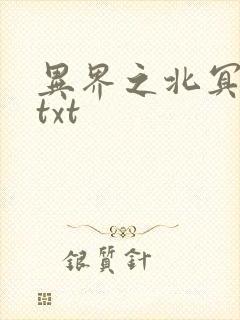 異界之北冥
txt
銀質針